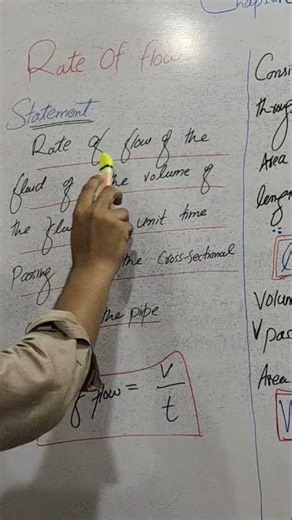 Chapter
Rate Of flow
Statement
Rate of flow of the
fluid of the volume of
the flu unit time
Passing the Cross-Sectional
the pipe
flow = V / t
Consi
throug
Area
leng
Volum
V pas
Area
V